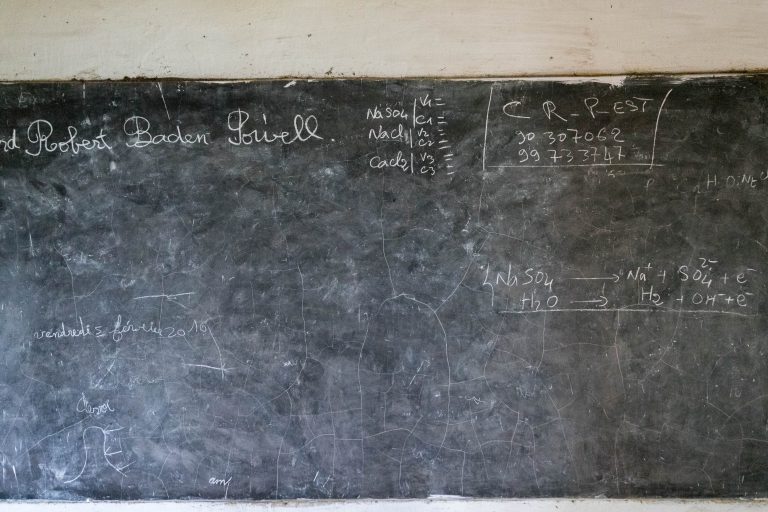 Robert Baden Powell.
NaSO4 | V1 =
C1 =
NaCl | V2 =
C2 =
CaCl2 | V3 =
C3 =
C R_P_EST
90 307062
99 733747
NaSO4 → Na+ + SO4 2- + e-
H2O → H2 + OH- + e-
vendredi 5 février 2016